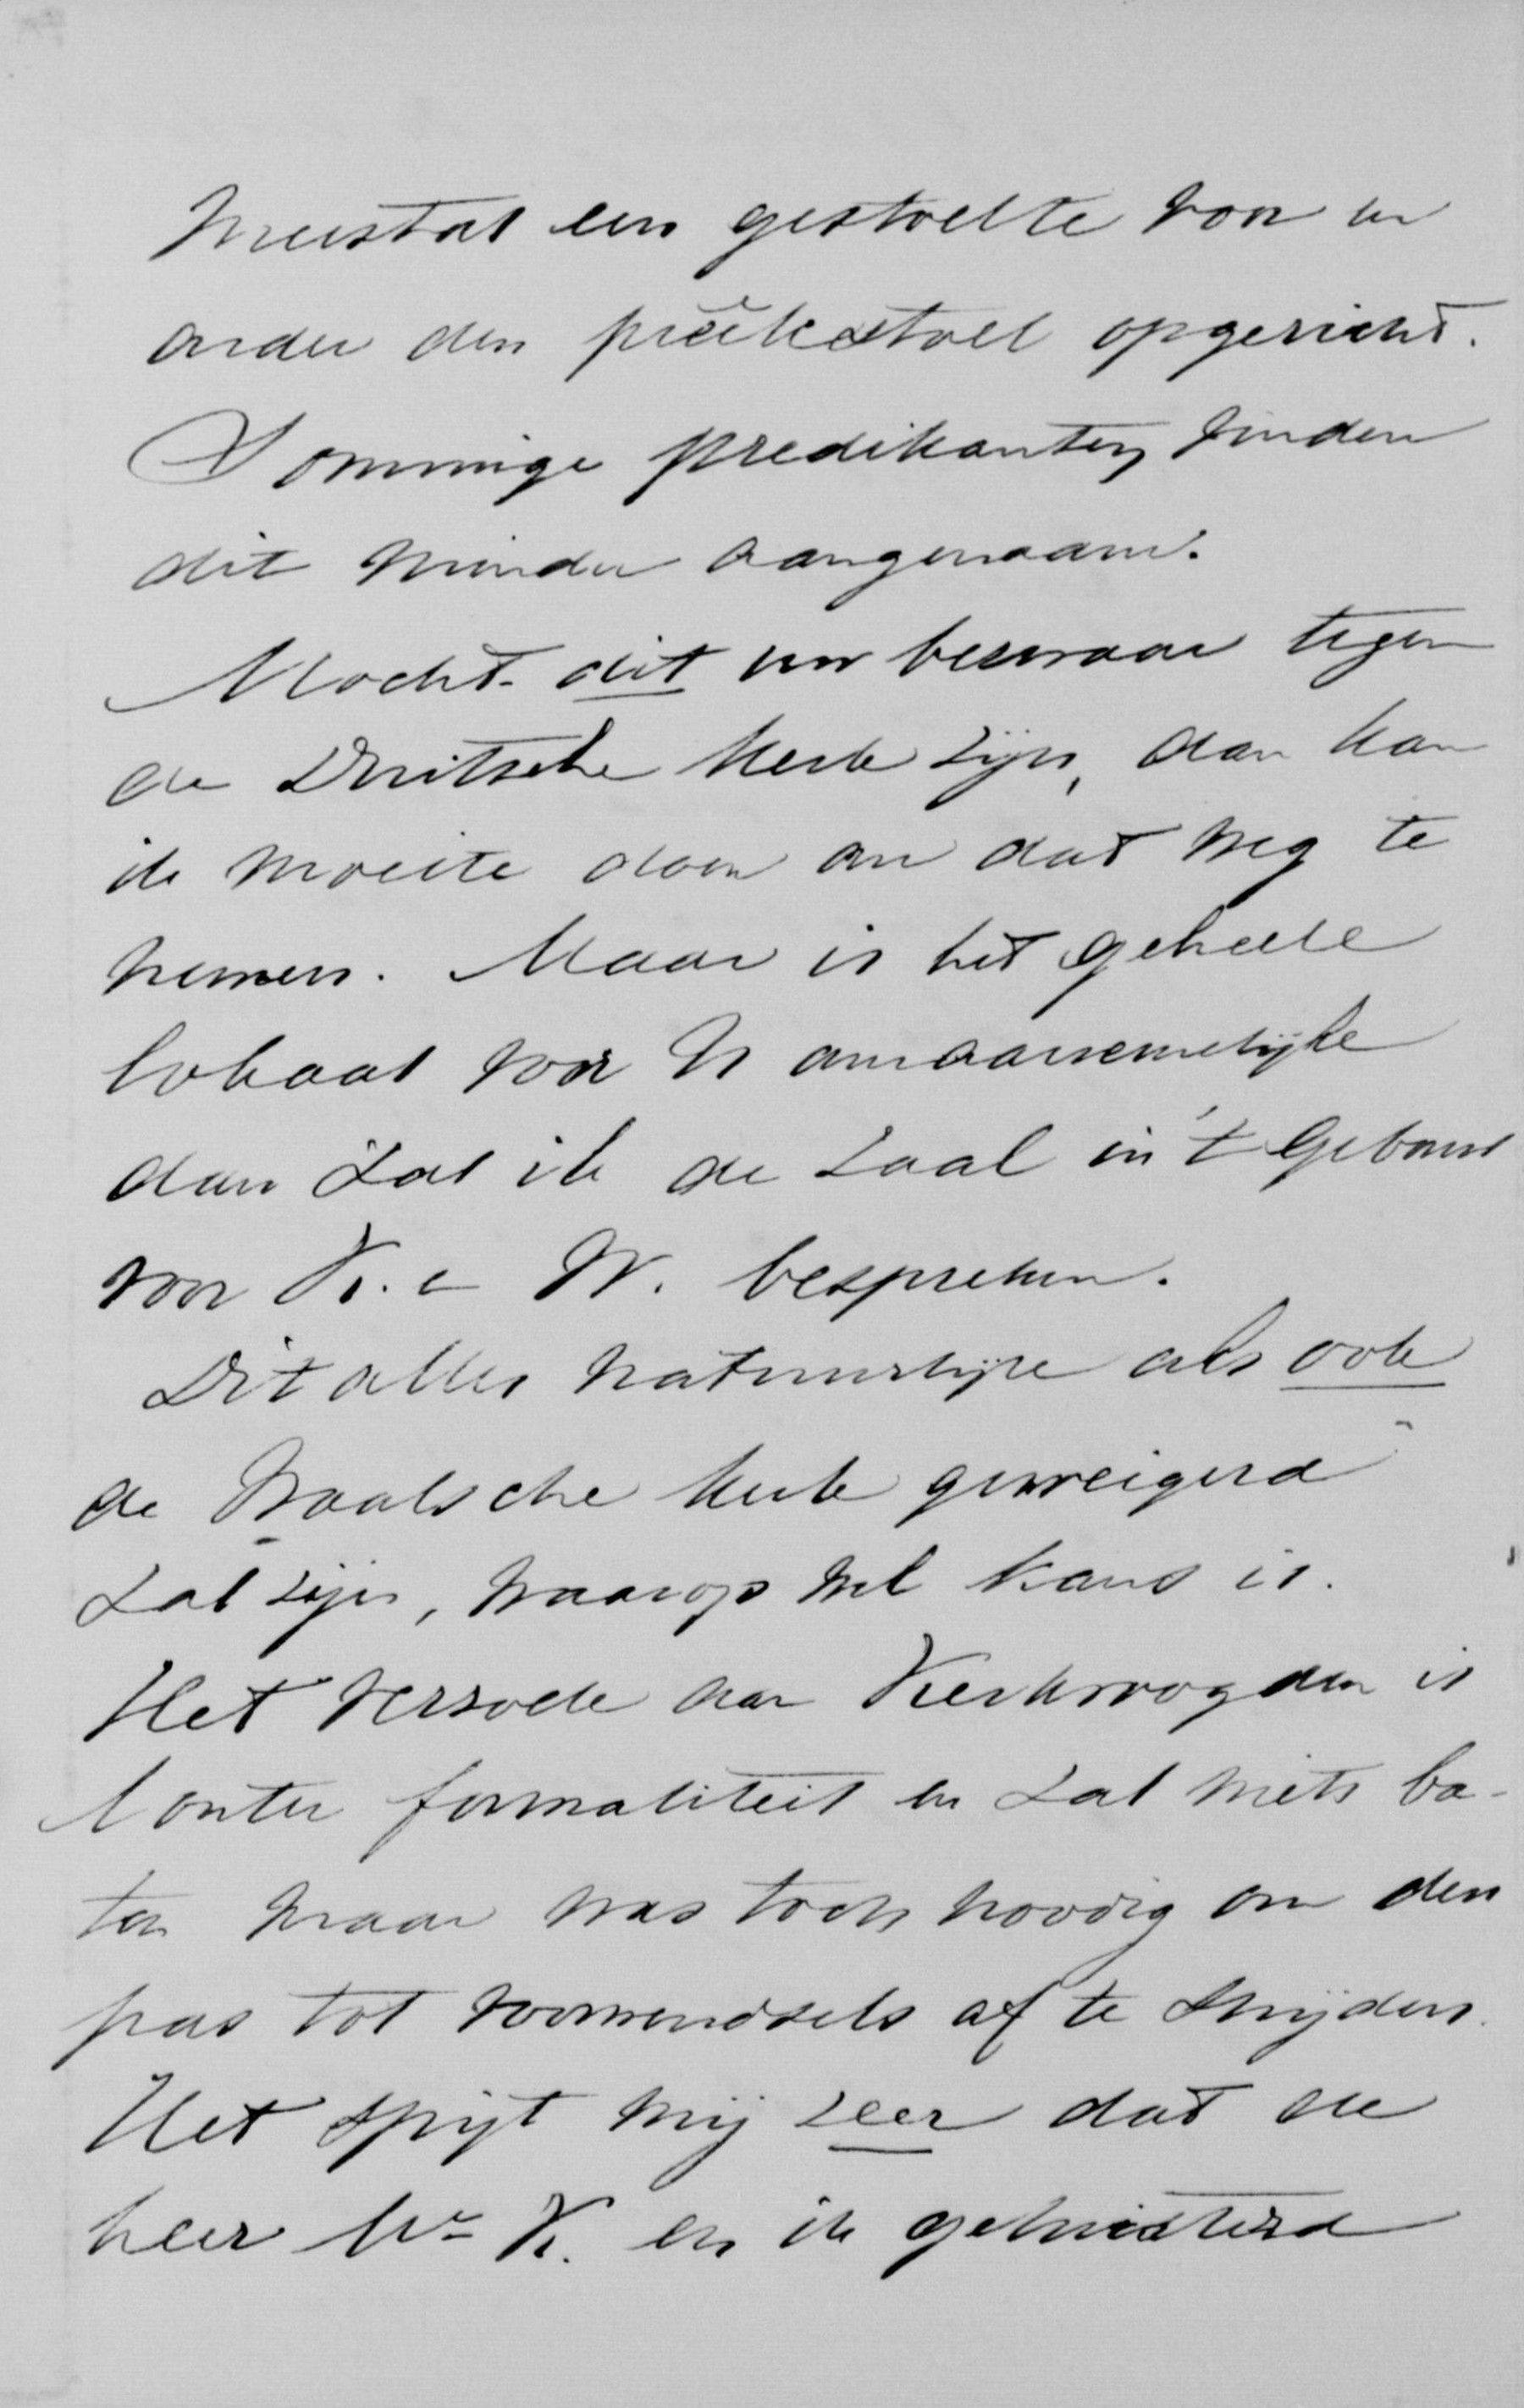 meestal een gestoelte voor en
onder den preêkstoel opgericht.
Sommige predikanten vinden
dit minder aangenaam.
Mocht dit uw bezwaar tegen
de Duitsche kerk zijn, dan kan
ik moeite doen om dat weg te
nemen. Maar is het geheele
lokaal voor U onaannemelijke
dan zal ik de zaal in 't Gebouw
voor K. e W. bespreken.
Dit alles natuurlijk als ook
de Waalsche kerk geweigerd
zal zijn, waarop wel kans is.
Het verzoek aan Kerkvoogden is
louter formaliteit en zal niets ba-
ten maar was toch noodig om den
pas tot voorwendsels af te snijden.
Het spijt mij zeer dat de
heer v. K. en ik gehuisterd